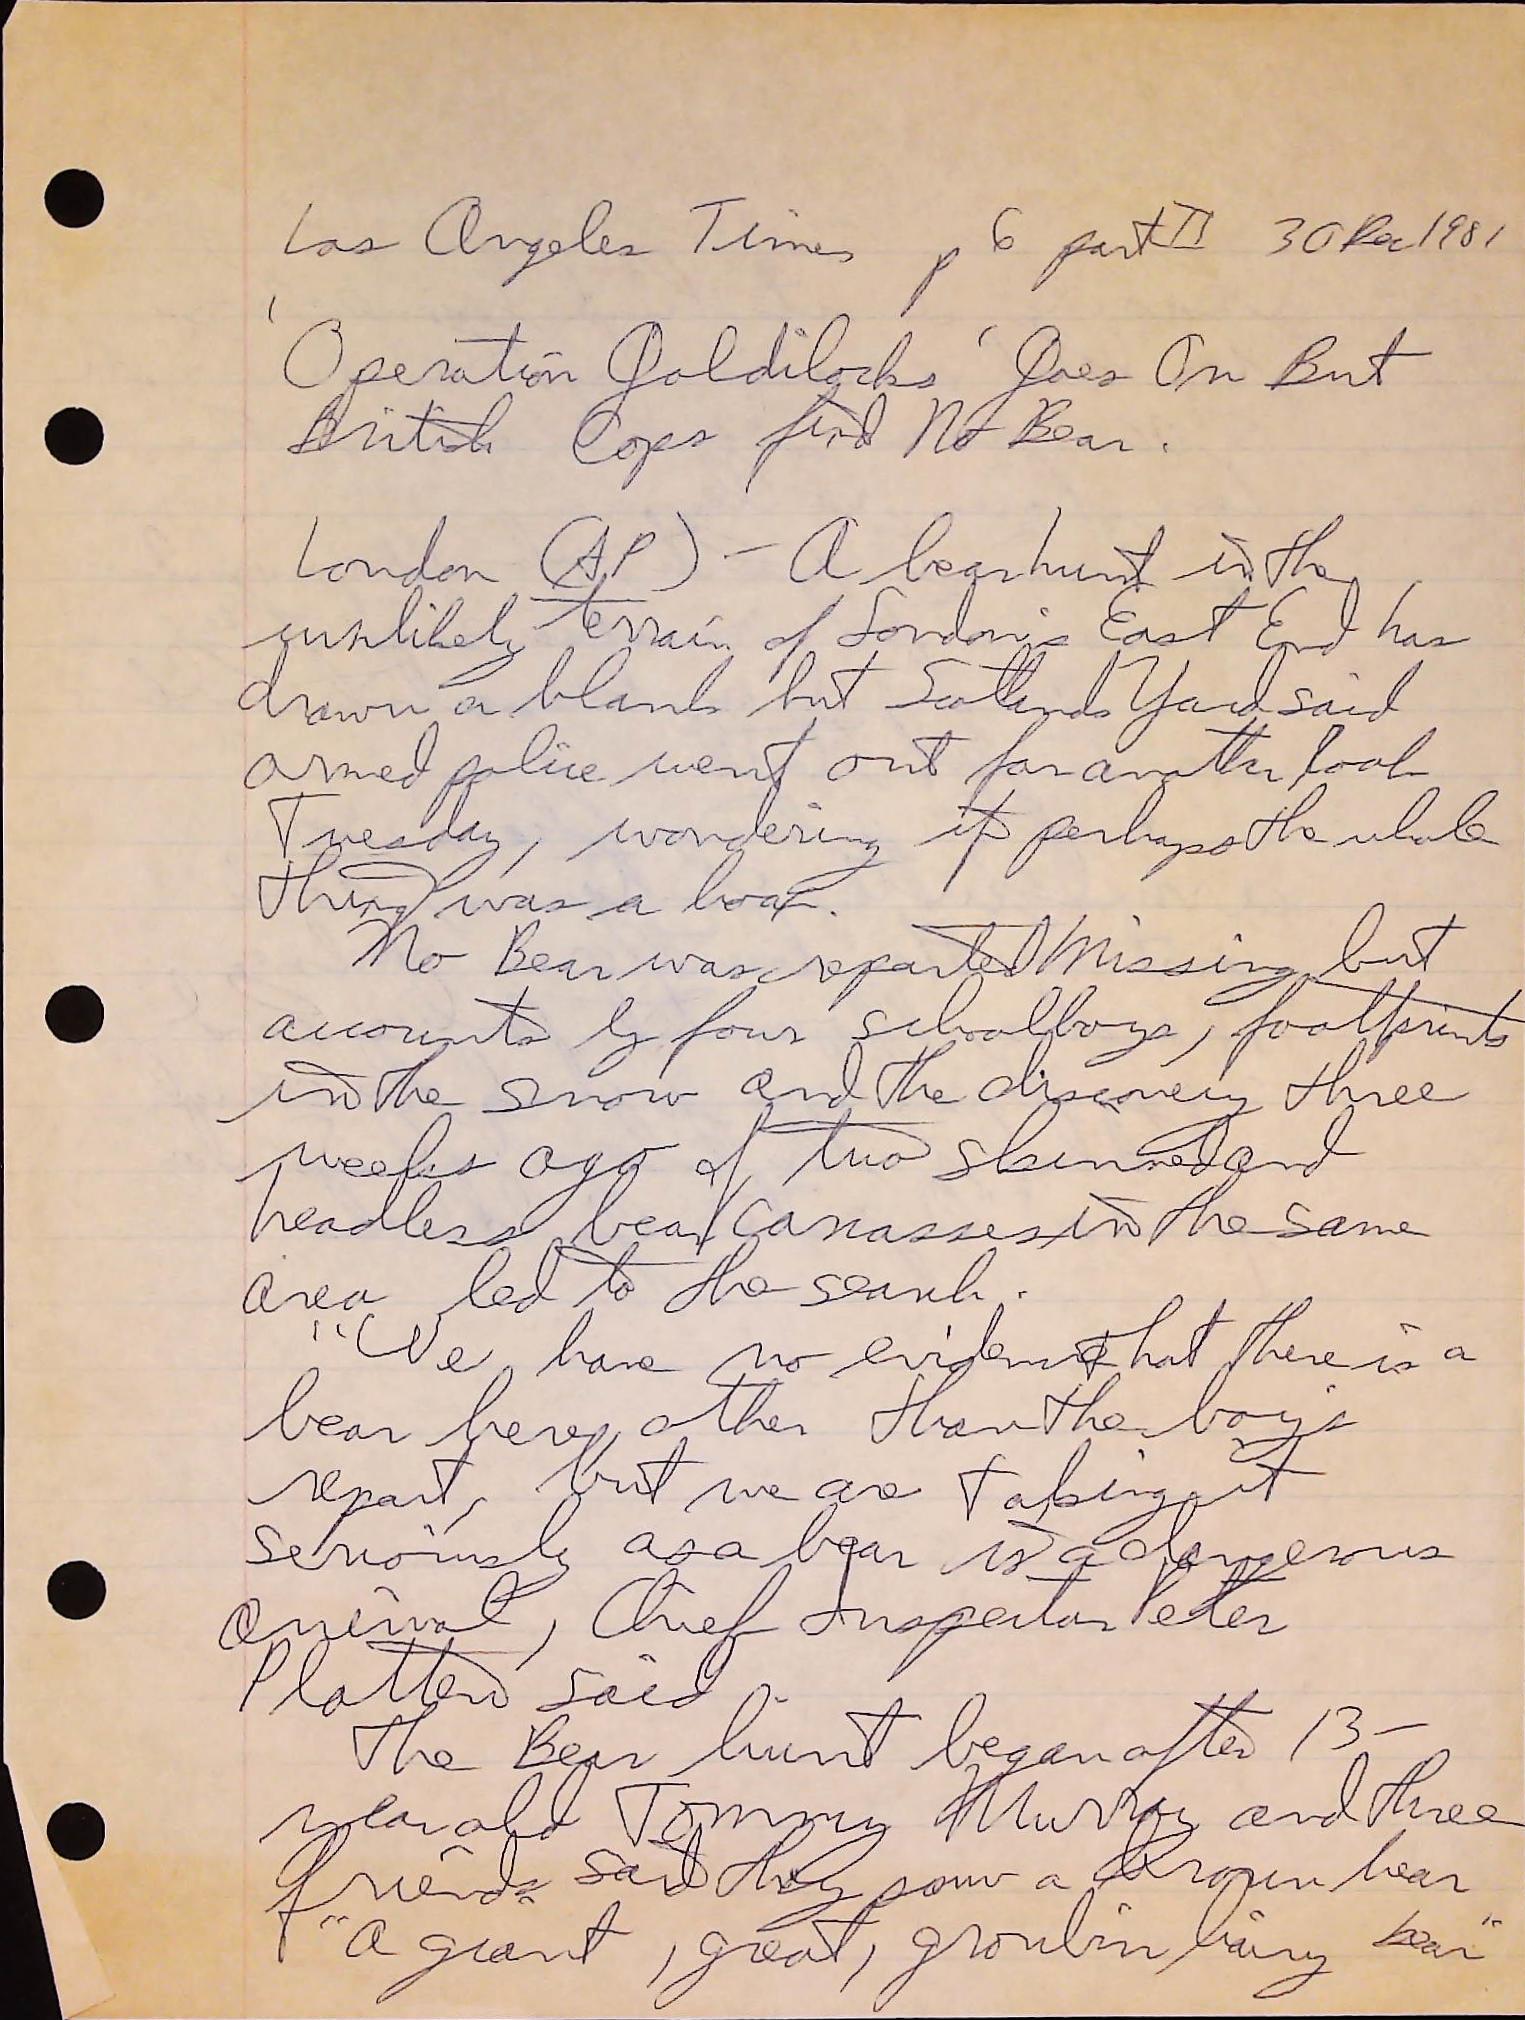 Los Angeles Times p 6 part II 30 Dec 1981
'Operation Goldilocks' Goes On But
British Cops find No Bear.
London (AP) - A bear hunt in the
unlikely terrain of London's East End has
drawn a blank but Scotland Yard said
armed police went out for another look
Tuesday, wondering if perhaps the whole
thing was a hoax.
No Bear was reported Missing but
accounts by four schoolboys, footprints
in the snow and the discovery three
weeks ago of two skinned and
headless bear carcasses in the same
area led to the search.
"We have no evidence that there is a
bear here, other than the boy's
report, but we are taking it
seriously as a bear is a dangerous
animal, Chief Inspector Peter
Platten said
The Bear hunt began after 13-
year old Tommy Murray and three
friends said they saw a brown bear
"a giant, great, growlin hairy bear"